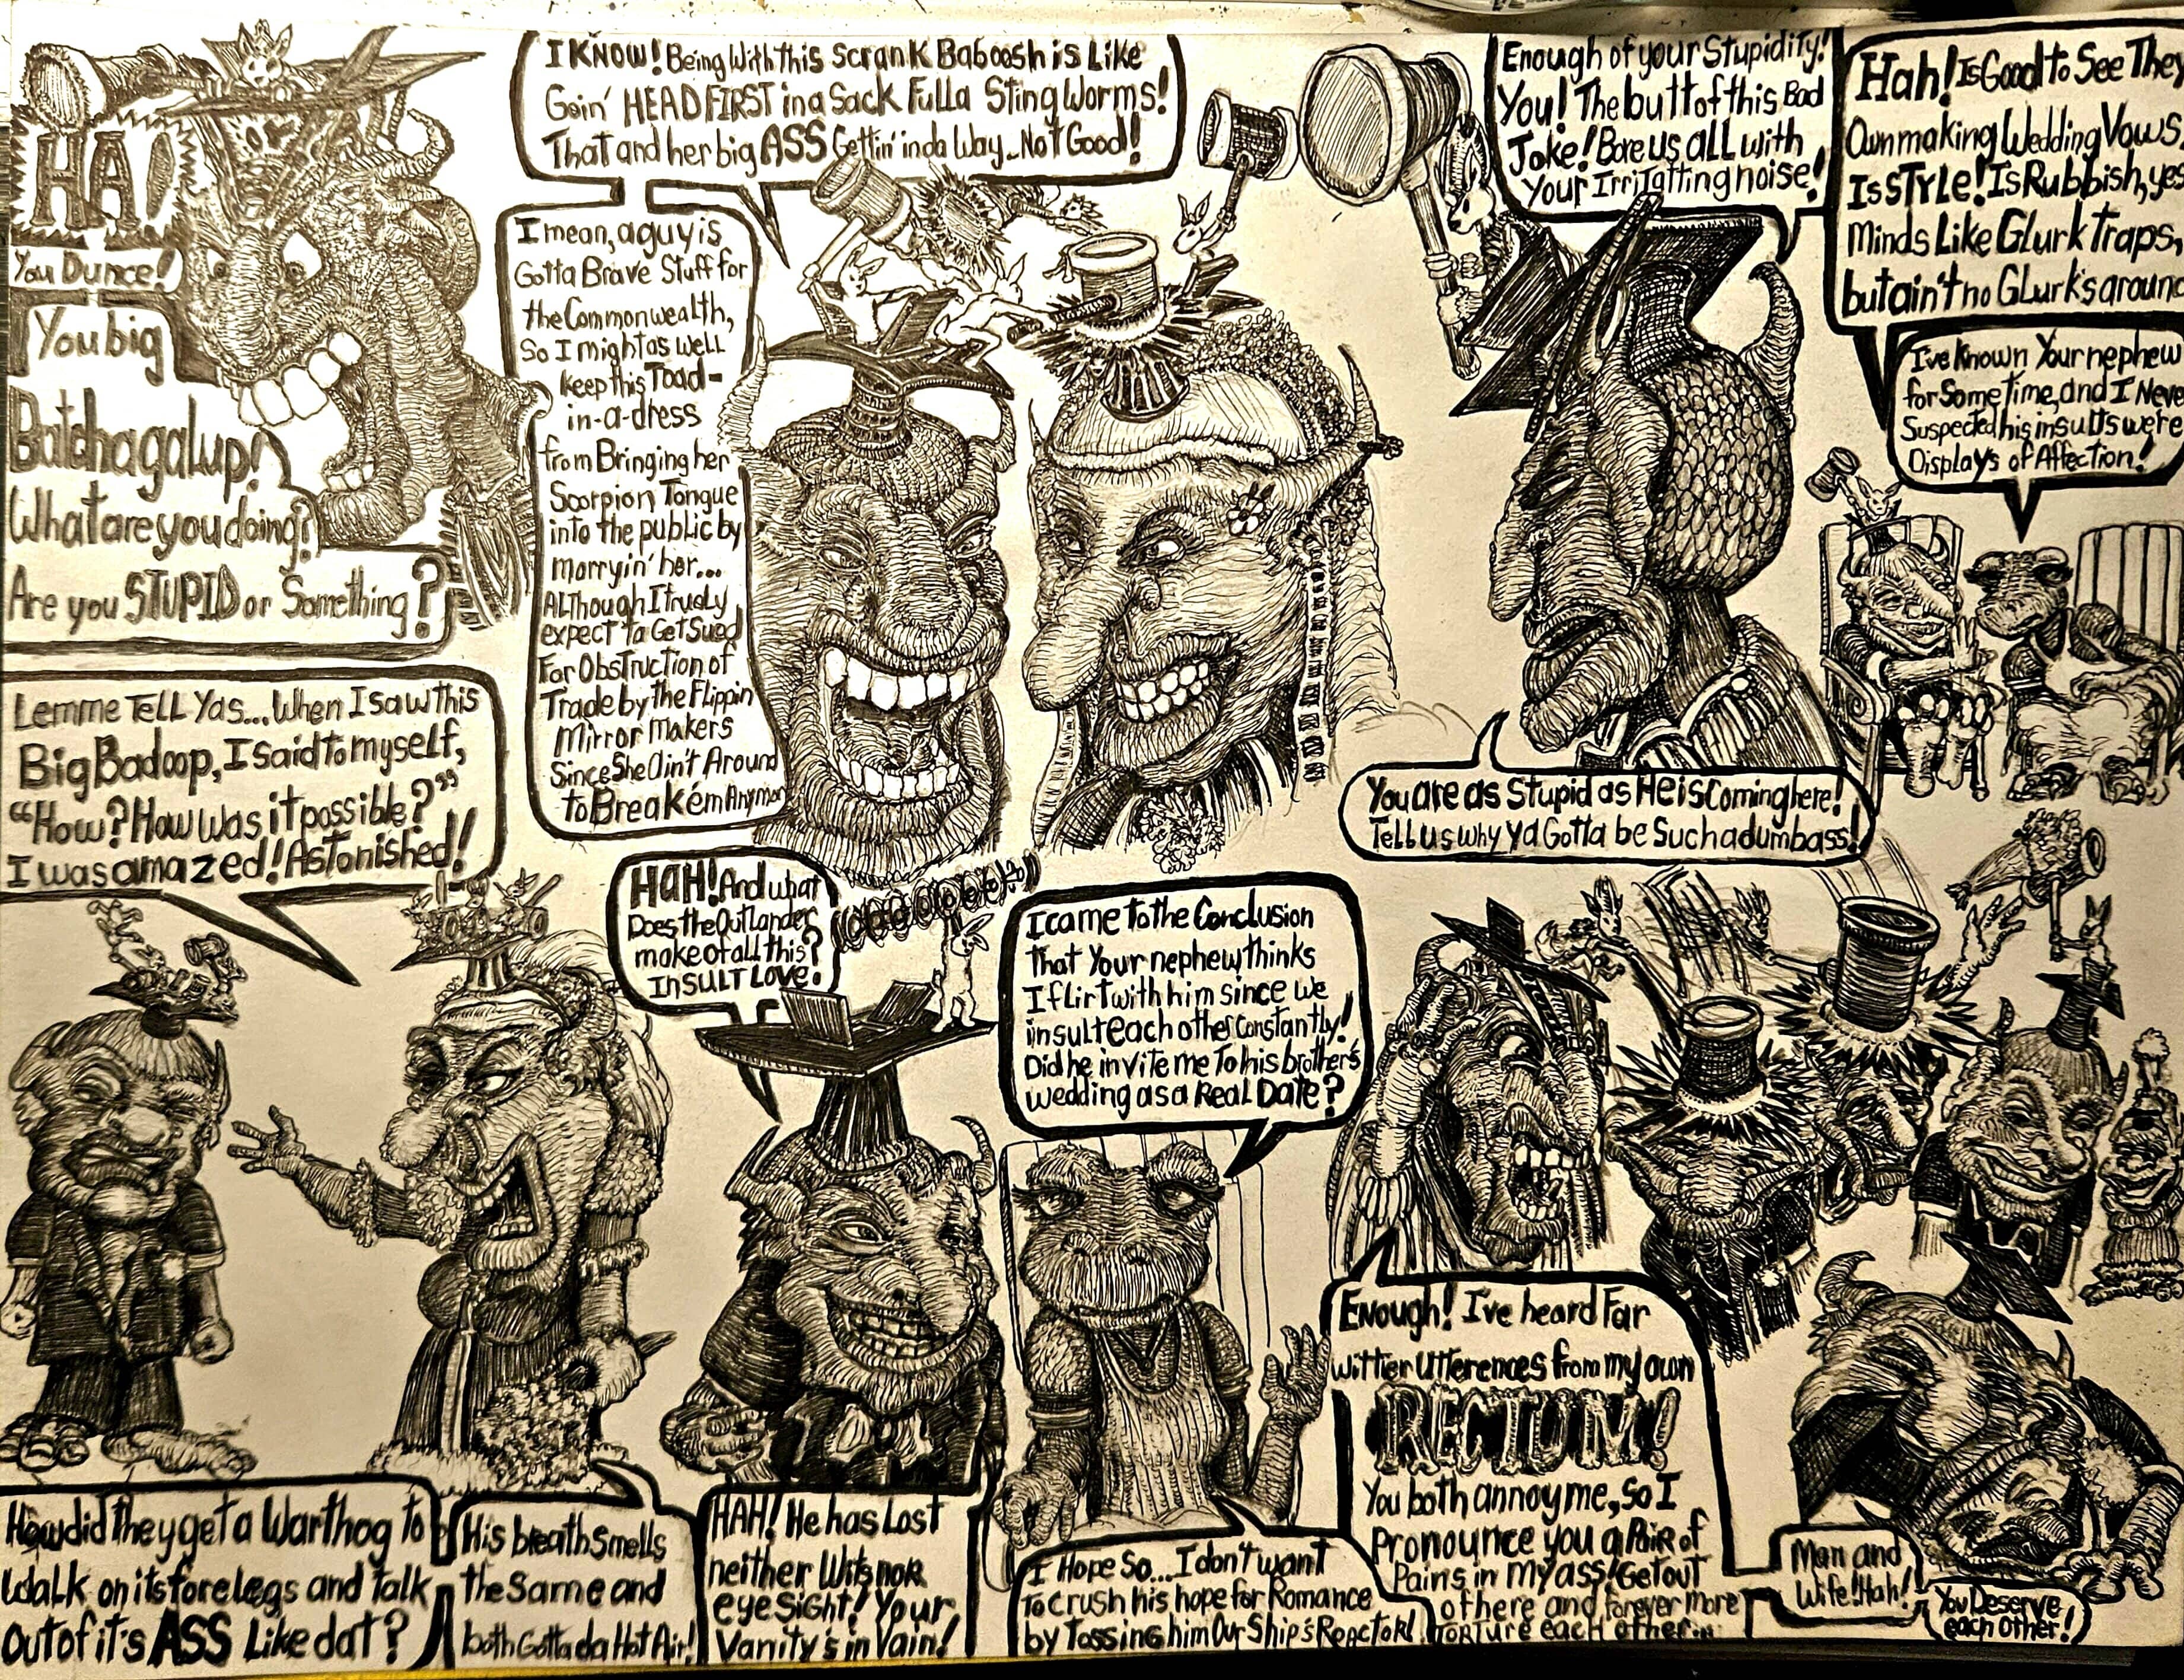 HA!
You Dunce!
You big
Batchagalup!
What are you doing?
Are you STUPID or Something?
I KNOW! Being With this Scrank Baboosh is Like
Goin' HEADFIRST in a Sack Fulla Sting Worms!
That and her big ASS Gettin' in da Way... Not Good!
I mean, a guy is
Gotta Brave Stuff for
the Commonwealth,
So I might as well
keep this Toad-
in-a-dress
from Bringing her
Scorpion Tongue
into the public by
marryin' her...
ALthough I truly
expect ta Get Sued
For Obstruction of
Trade by the Flippin
Mirror Makers
Since She Ain't Around
to Break ém Anymor
Enough of your Stupidity!
You! The butt of this Bad
Joke! Bore us all with
Your Irritatting noise!
Hah! Is Good to See They
Own making Wedding Vows.
Is STYLE! Is Rubbish, yes
Minds Like Glurk Traps,
but ain't no GLurk's around
I've Known Your nephew
for Some Time, and I Neve
Suspected his insults were
Displays of Affection!
You are as Stupid as He is Coming here!
Tell us why ya Gotta be Such a dumbass!
Lemme Tell Yas... When I saw this
Big Badoop, I said to myself,
"How? How was it possible?"
I was amazed! Astonished!
How did they get a Warthog to
Walk on its forelegs and talk
out of it's ASS Like dat?
His breath Smells
the Same and
both Gotta da Hot Air!
HAH! And what
Does the Outlander
make of all this?
INSULT LOVE.
I came to the Conclusion
that Your nephew thinks
I flirt with him since we
insult each other Constantly!
Did he invite me to his brother's
wedding as a Real Date?
HAH! He has Lost
neither Wits nor
eyesight! Your
Vanity's in Vain!
I Hope So... I don't want
to Crush his hope for Romance
by Tossing him Our Ship's Reactor!
Enough! I've heard Far
wittier Utterences from my own
RECTUM!
You both annoy me, So I
Pronounce you a Pair of
Pains in my ass! Get out
of here and forever more
TORTURE each other...
Man and
Wife! Hah!
You Deserve
each other!